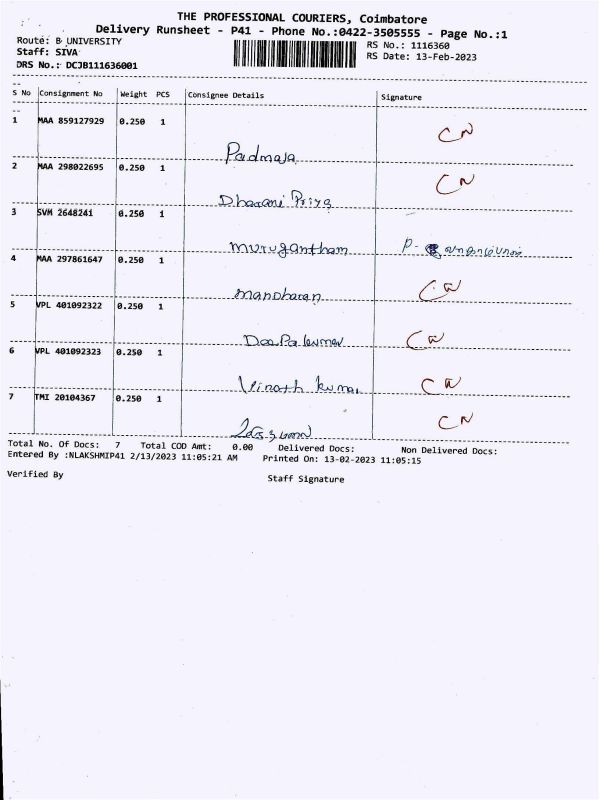 THE PROFESSIONAL COURIERS, Coimbatore
Delivery Runsheet - P41 - Phone No.:0422-3505555 - Page No.:1
Route: B UNIVERSITY
RS No.: 1116360
Staff: SIVA
RS Date: 13-Feb-2023
DRS No.: DCJB111636001
S No Consignment No Weight PCS Consignee Details Signature
1 MAA 859127929 0.250 1 CN
Padmaja
2 MAA 298022695 0.250 1 CN
Dharani Priya
3 SVM 2648241 0.250 1
Murugantham P.
4 MAA 297861647 0.250 1 CN
Manoharan
5 VPL 401092322 0.250 1 CN
DeePakumar
6 VPL 401092323 0.250 1 CN
Vinoth kumar
7 TMI 20104367 0.250 1 CN
Total No. Of Docs: 7 Total COD Amt: 0.00 Delivered Docs: Non Delivered Docs:
Entered By :NLAKSHMIP41 2/13/2023 11:05:21 AM Printed On: 13-02-2023 11:05:15
Verified By
Staff Signature